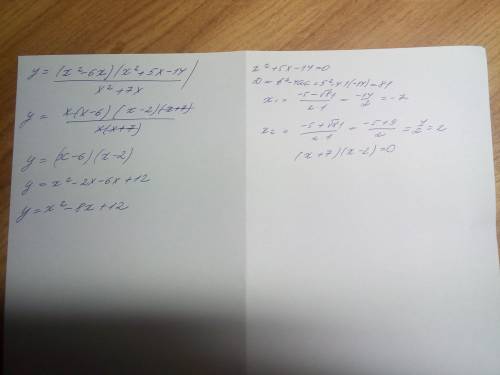 y = (x²-6x)(x²+5x-14)/(x²+7x)
y = x(x-6)(x-2)(x+7)/(x(x+7))
y = (x-6)(x-2)
y = x²-2x-6x+12
y = x²-8x+12
x²+5x-14=0
D = b²-4ac = 5²-4·1·(-14) = 81
x₁ = (-5-√81)/(2·1) = -14/2 = -7
x₂ = (-5+√81)/(2·1) = (-5+9)/2 = 4/2 = 2
(x+7)(x-2)=0